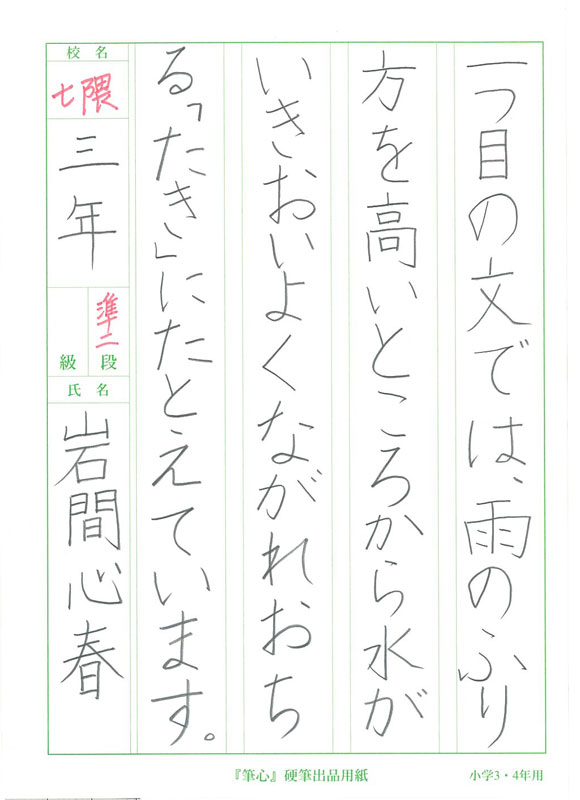 一つ目の文では、雨のふり
方を高いところから水が
いきおいよくながれおち
る「たき」にたとえています。
校名
七隈
三年
準二
段
級
氏名
岩間心春
『筆心』硬筆出品用紙
小学3・4年用